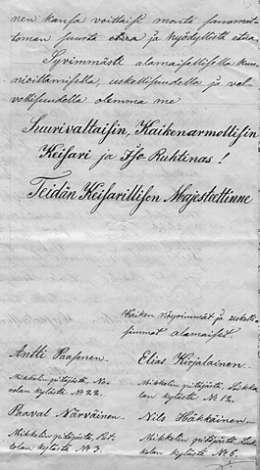 nen kansa voittaisi maito sanomatto-
toman suurta etua ja hyödyllistä etua.
Syvimmästi alamaisellisella kun-
nioittamisella, uskollisuudella ja val-
vollisuudella olemme me
Suurivaltaisin, Kaikenarmollisin
Keisari ja Iso Ruhtinas!
Teidän Keisarillisen Majesteettinne
Kaiken nöyrimmät ja uskolli-
simmat alamaiset.
Antti Paasonen.
Mikkelin pitäjästä, No-
volan kylästä № 22.
Paaval Närväinen.
Mikkelin pitäjästä,
kylästä № 3.
Elias Kirjalainen.
Mikkelin pitäjästä,
lan kylästä № 12.
Nils Häkkäinen.
Mikkelin pitäjästä,
lan kylästä № 6.